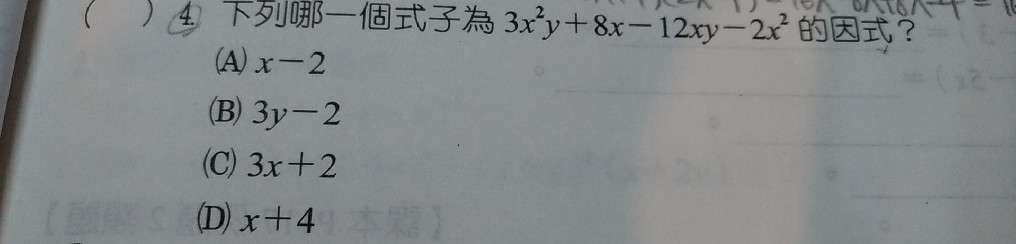 (　) 4. 下列哪一個式子為 3x²y＋8x－12xy－2x² 的因式？
(A) x－2
(B) 3y－2
(C) 3x＋2
(D) x＋4